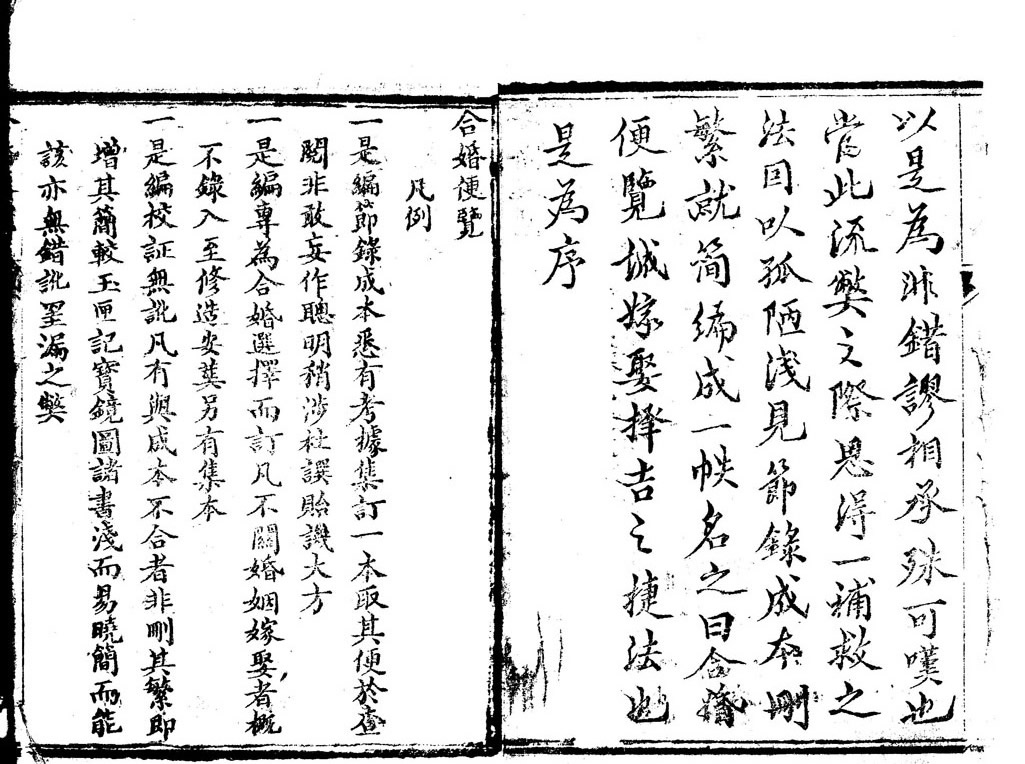 以是為非錯謬相承殊可嘆也
當此流獘之際思得一補救之
法因以孤陋淺見節錄成本刪
繁就简編成一帙名之曰合婚
便覽誠嫁娶擇吉之捷法也
是為序
合婚便覽
凡例
一是編節錄成本悉有考據集訂一本取其便於查
閱非敢妄作聰明稍涉杜譔貽譏大方
一是編專為合婚選擇而訂凡不關婚姻嫁娶者概
不錄入至修造安葬另有集本
一是編校証無訛凡有與成本不合者非刪其繁即
增其簡較玉匣記寶鏡圖諸書淺而易曉簡而能
該亦無錯訛罣漏之獘